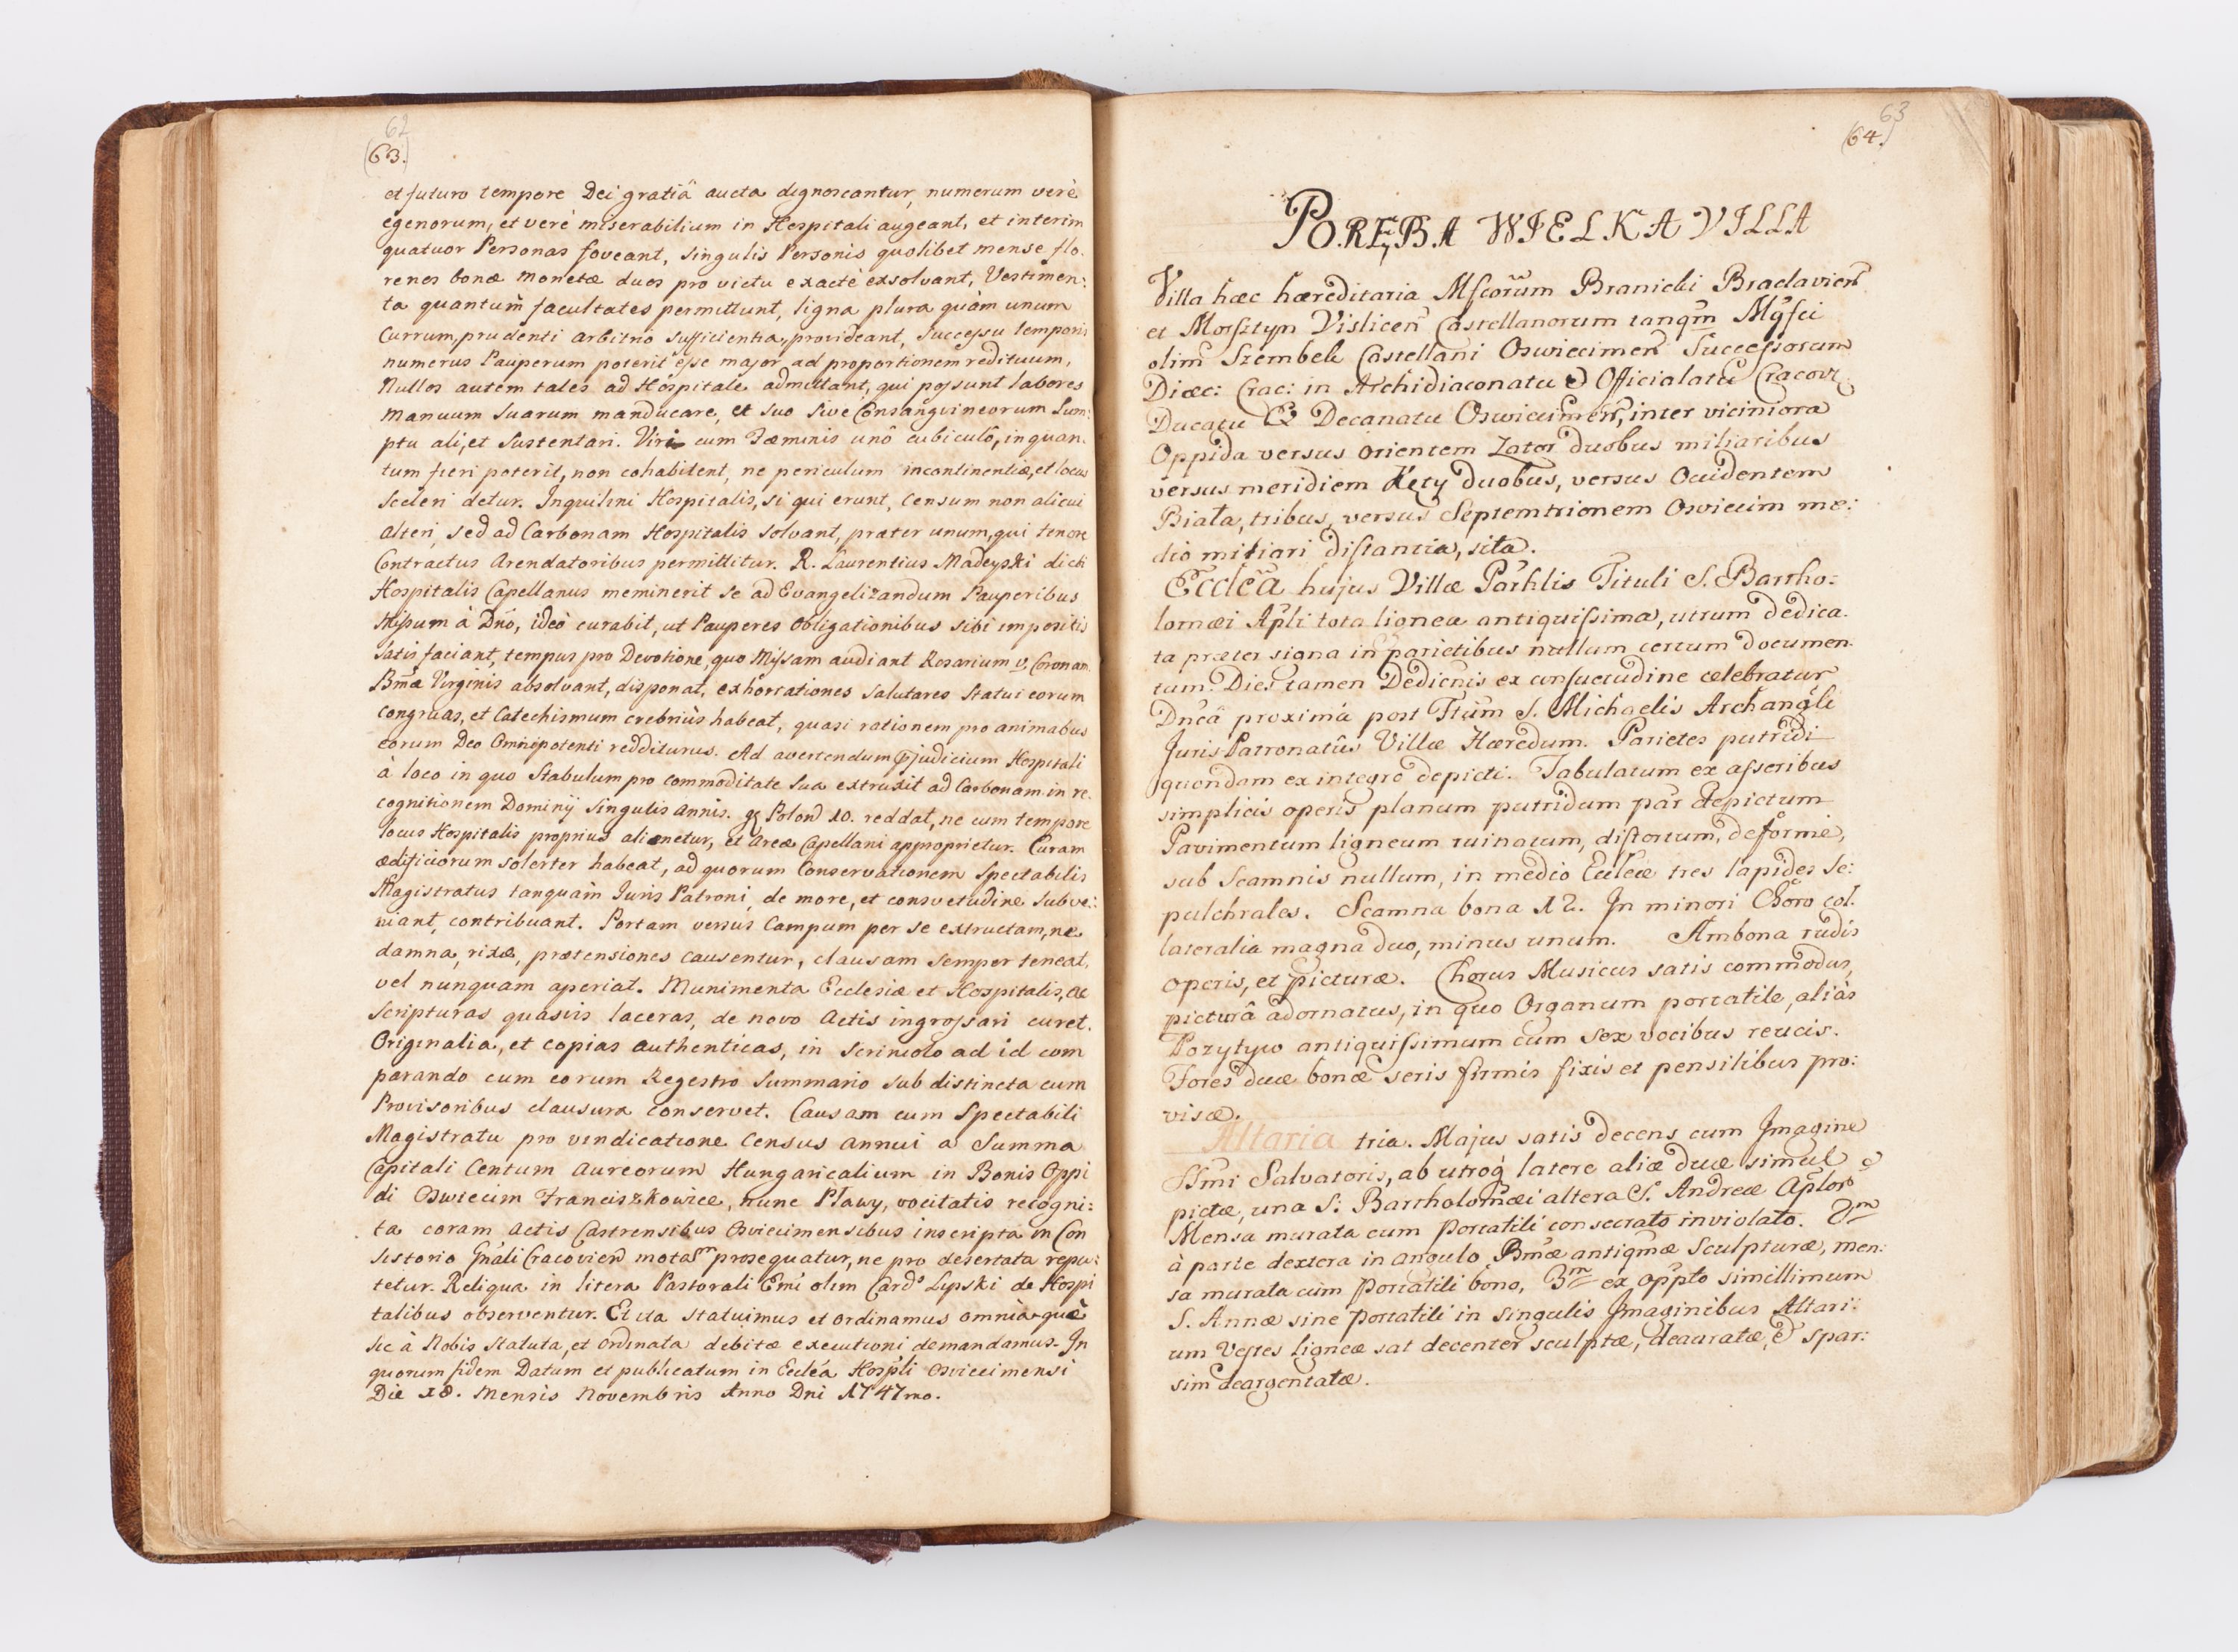 62
(63.)
et futuro tempore Dei gratiâ aucta dignoscantur, numerum verè
egenorum, et verè miserabilium in Hospitali augeant, et interim
quatuor Personas foveant, singulis Personis quolibet mense flo-
renos bonæ monetæ duos pro victu exactè exsolvant, Vestimen:
ta quantum facultates permittunt, ligna plura quàm unum
Currum, prudenti arbitrio sufficientia, provideant, successu temporis
numerus Pauperum poterit esse major ad proportionem redituum,
Nullos autem tales ad Hospitale admittant, qui possunt labores
manuum suarum manducare, et suo sive Consanguineorum Sum:
ptu ali, et sustentari. Viri cum Fæminis unô cubiculô, in quan-
tum fieri poterit, non cohabitent, ne periculum incontinentiæ, et locus
sceleri detur. Inquilini Hospitalis, si qui erunt, Censum non alicui
alteri, sed ad Carbonam Hospitalis solvant, præter unum, qui tenore
Contractus Arendatoribus permittitur. R. Laurentius Madeyski dicti
Hospitalis Capellanus meminerit se ad Evangelizandum Pauperibus
Missum à Dño, ideò curabit, ut Pauperes obligationibus sibi impositis
satis faciant, tempus pro Devotione, quo Missam audiant Rosarium v. Coronam
Bmæ Virginis absolvant, disponat, exhortationes salutares statui eorum
congruas, et Catechismum crebriùs habeat, quasi rationem pro animabus
eorum Deo Omnipotenti redditurus. Ad avertendum pjudicium Hospitali
à loco in quo Stabulum pro commoditate sua extruxit ad Carbonam in re-
cognitionem Dominij singulis annis. gs Polon 10. reddat, ne cum tempore
locus Hospitalis proprius alienetur, et areæ Capellani approprietur. Curam
ædificiorum solerter habeat, ad quorum Conservationem Spectabilis
Magistratus tanquam Juris Patroni, de more, et consvetudine subve:
niant, contribuant. Portam versus Campum per se extructam, ne
damna, rixæ, prætensiones causentur, clausam semper teneat,
vel nunquam aperiat. Munimenta Ecclesiæ et Hospitalis, ac
scripturas quasvis laceras, de novo Actis ingrossari curet.
Originalia, et copias authenticas, in scrineolo ad id com
parando cum eorum Regestro summario sub distincta cum
Provisoribus clausura conservet. Causam cum Spectabili
Magistratu pro vindicatione Census annui a Summa
Capitali Centum Aureorum Hungaricalium in Bonis Oppi
di Oswiecim Franciszkowice, nunc Pławy, vocitatis recogni:
ta coram Actis Castrensibus Osviecimensibus inscripta in Con
sistorio Gñali Cracovien motam prosequatur, ne pro desertata repu:
tetur. Reliqua in litera Pastorali Emi olim Cards Lipski de Hospi
talibus observentur. Et ita statuimus et ordinamus omnia quæ
sic à Nobis statuta, et ordinata debitæ executioni demandamus. In
quorum fidem Datum et publicatum in Ecclêa Hospli Osviecimensi
Die 18. Mensis Novembris Anno Dni 1747mo.
63
(64.)
PORĘBA WIELKA VILLA
Villa hæc hæreditaria Mfcorum Branicki Braclavien
et Morsztyn Vislicen Castellanorum tanqm Mgfci
olim Szembek Castellani Oswiecimen Successorum
Diæc: Crac: in Archidiaconatu & Officialatu Cracovi
Ducatu & Decanatu Oswiecimen, inter viciniora
Oppida versus orientem Zator duobus miliaribus
versus meridiem Kęty duobus, versus Occidentem
Biała, tribus, versus Septemtrionem Osviecim me:
dio miliari distantia, sita.
Ecclêa hujus Villæ Parhlis Tituli S. Bartho:
lomæi Apli tota lignea antiquissima, utrum dedica-
ta præter signa in parietibus nullum certum documen-
tum. Dies tamen Dedicnis ex consuetudine celebratur
Dnĉa proxima post Ftum S. Michaelis Archangli
Juris Patronatûs Villæ Hæredum. Parietes putridi
quondam ex integro depicti. Tabulatum ex asseribus
simplicis operis planum putridum par depictum
Pavimentum ligneum ruinatum, distortum, deforme,
sub Scamnis nullum, in medio Ecclæ tres lapides se:
pulchrales. Scamna bona 12. In minori Choro col-
lateralia magna duo, minus unum. Ambona rudis
operis, et picturæ. Chorus Musicus satis commodus,
picturâ adornatus, in quo Organum portatile, aliàs
Pozytyw antiquissimum cum sex vocibus reucis.
Fores duæ bonæ seris firmis fixis et pensilibus pro:
visæ.
Altaria tria. Majus satis decens cum Imagine
SSmi Salvatoris, ab utroq latere aliæ duæ simul
pictæ, una S. Bartholomæi altera S. Andreæ Aplor
Mensa murata cum Portatili consecrato inviolato. 2m
à parte dextera in angulo Bmæ antiqmæ Sculpturæ, men:
sa murata cum Portatili bono, 3m ex oppto simillimum
S. Annæ sine Portatili in singulis Imaginibus Altari:
um Vestes ligneæ sat decenter sculptæ, deauratæ, & spar:
sim deargentatæ.